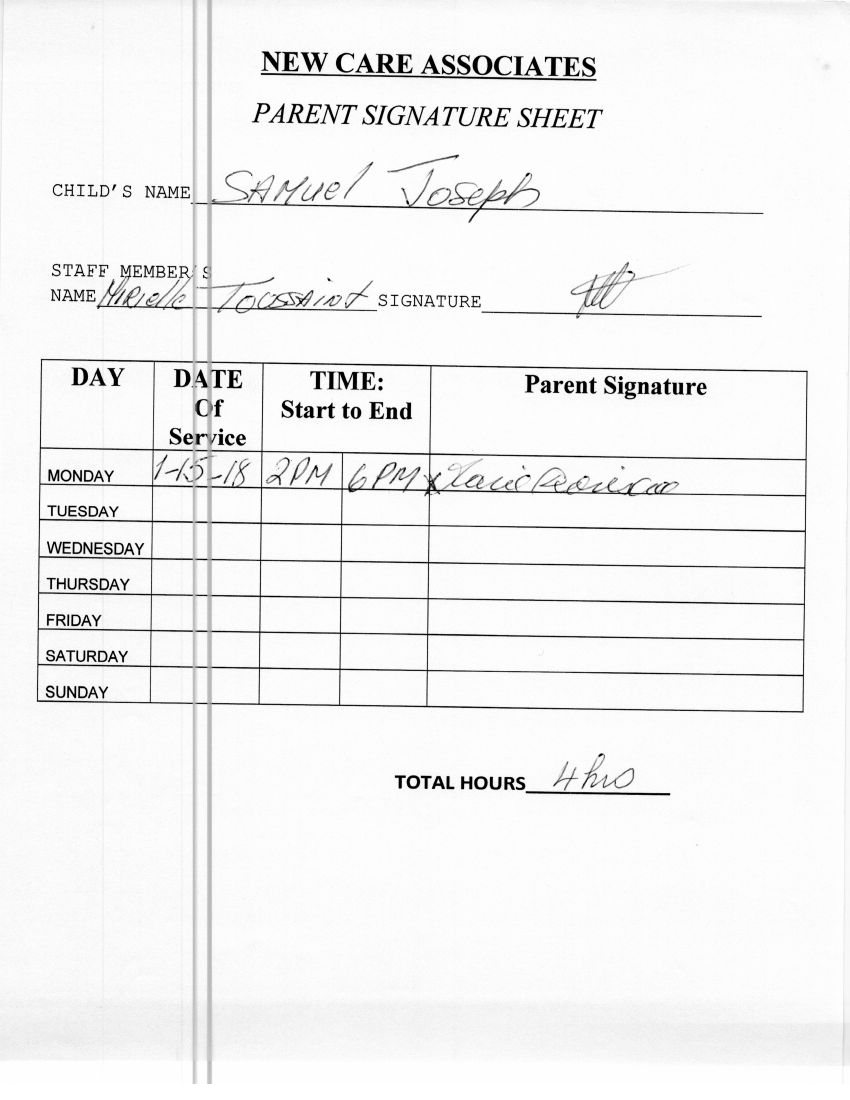 NEW CARE ASSOCIATES
PARENT SIGNATURE SHEET
CHILD'S NAME SAMuel Joseph
STAFF MEMBER'S
NAME MIRielle TOUSSAINT SIGNATURE
DAY DATE Of Service TIME: Start to End Parent Signature
MONDAY 1-15-18 2PM 6PM x
TUESDAY
WEDNESDAY
THURSDAY
FRIDAY
SATURDAY
SUNDAY
TOTAL HOURS 4hrs